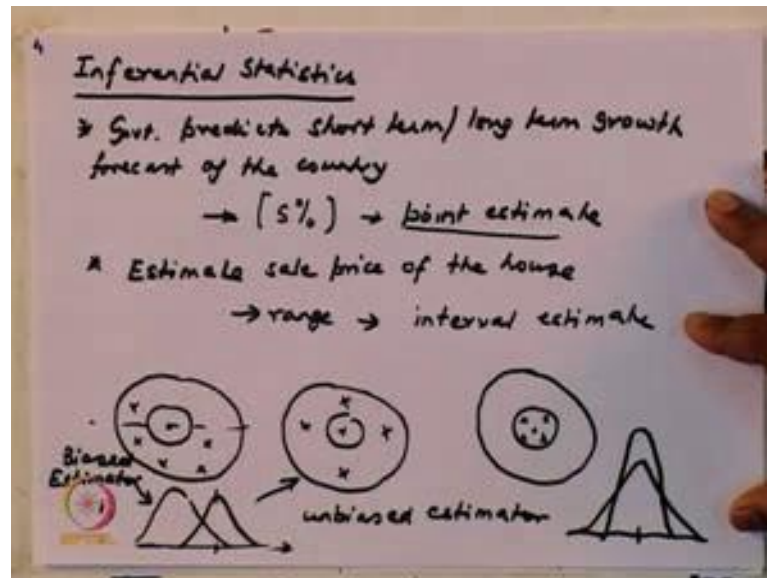 4
Inferential Statistics
* Govt. predicts short term/ long term growth
forecast of the country
→ [5%] → point estimate
* Estimate sale price of the house
→ range → interval estimate
Biased
Estimator
unbiased estimator